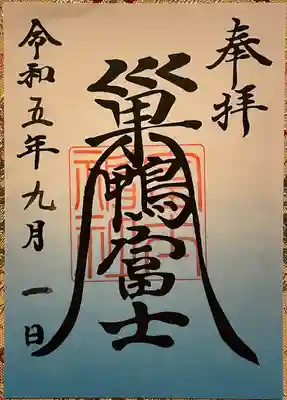 奉拝
巣鴨富士
令和五年九月一日